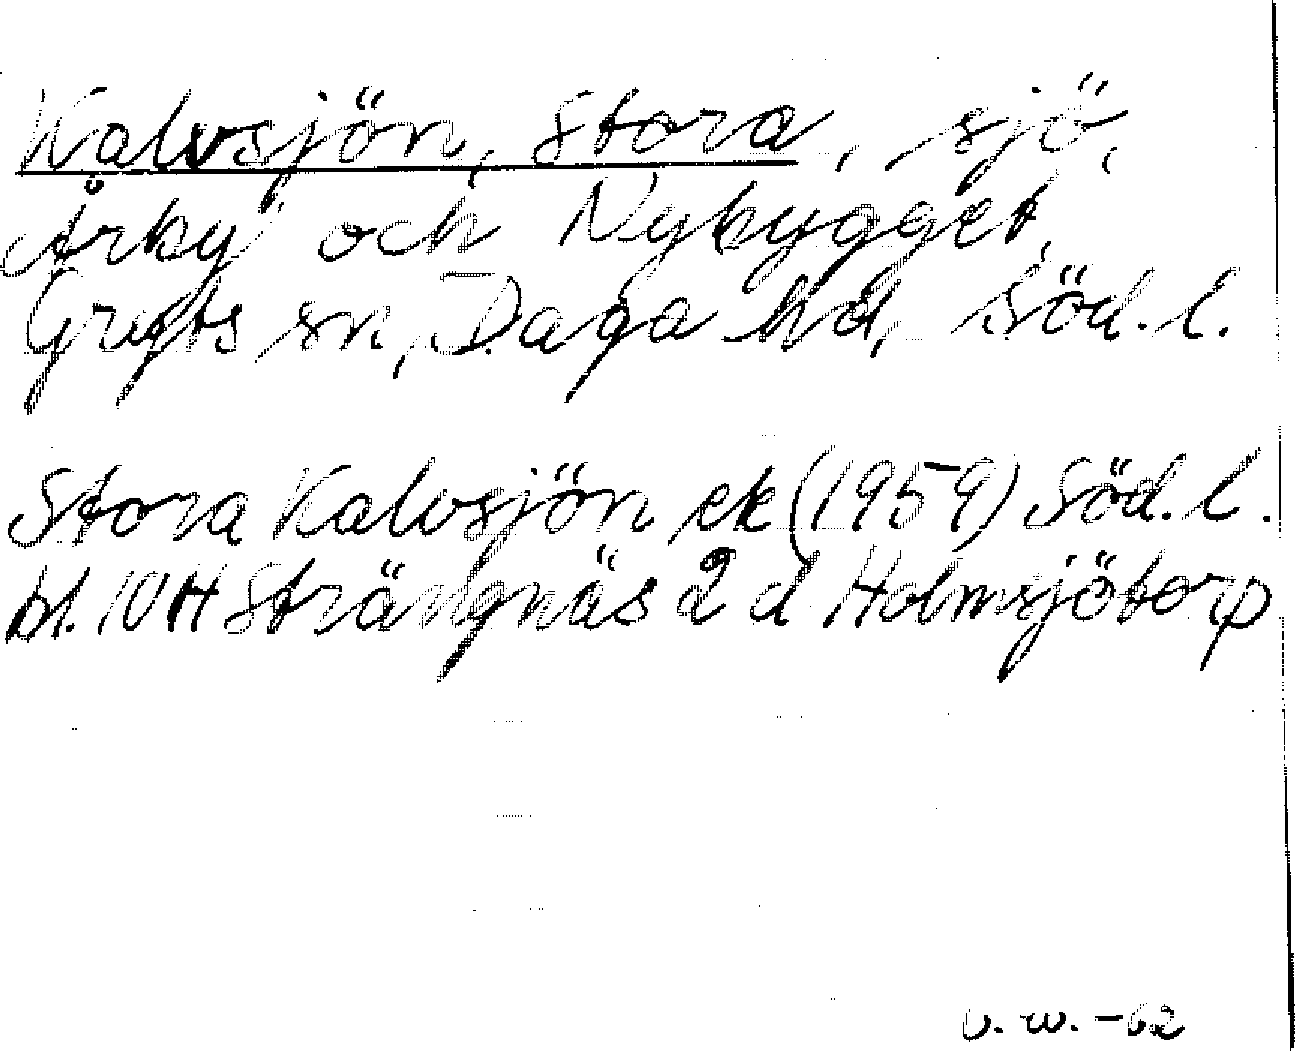 Kalvsjön, Stora, sjö,
Årby och Nybygget,
Gryts sn, Daga hd, Söd. l.
Stora Kalvsjön ek (1959) Söd. l.
bl. 10H Strängnäs 2 d Holmsjötorp
v. w. -62